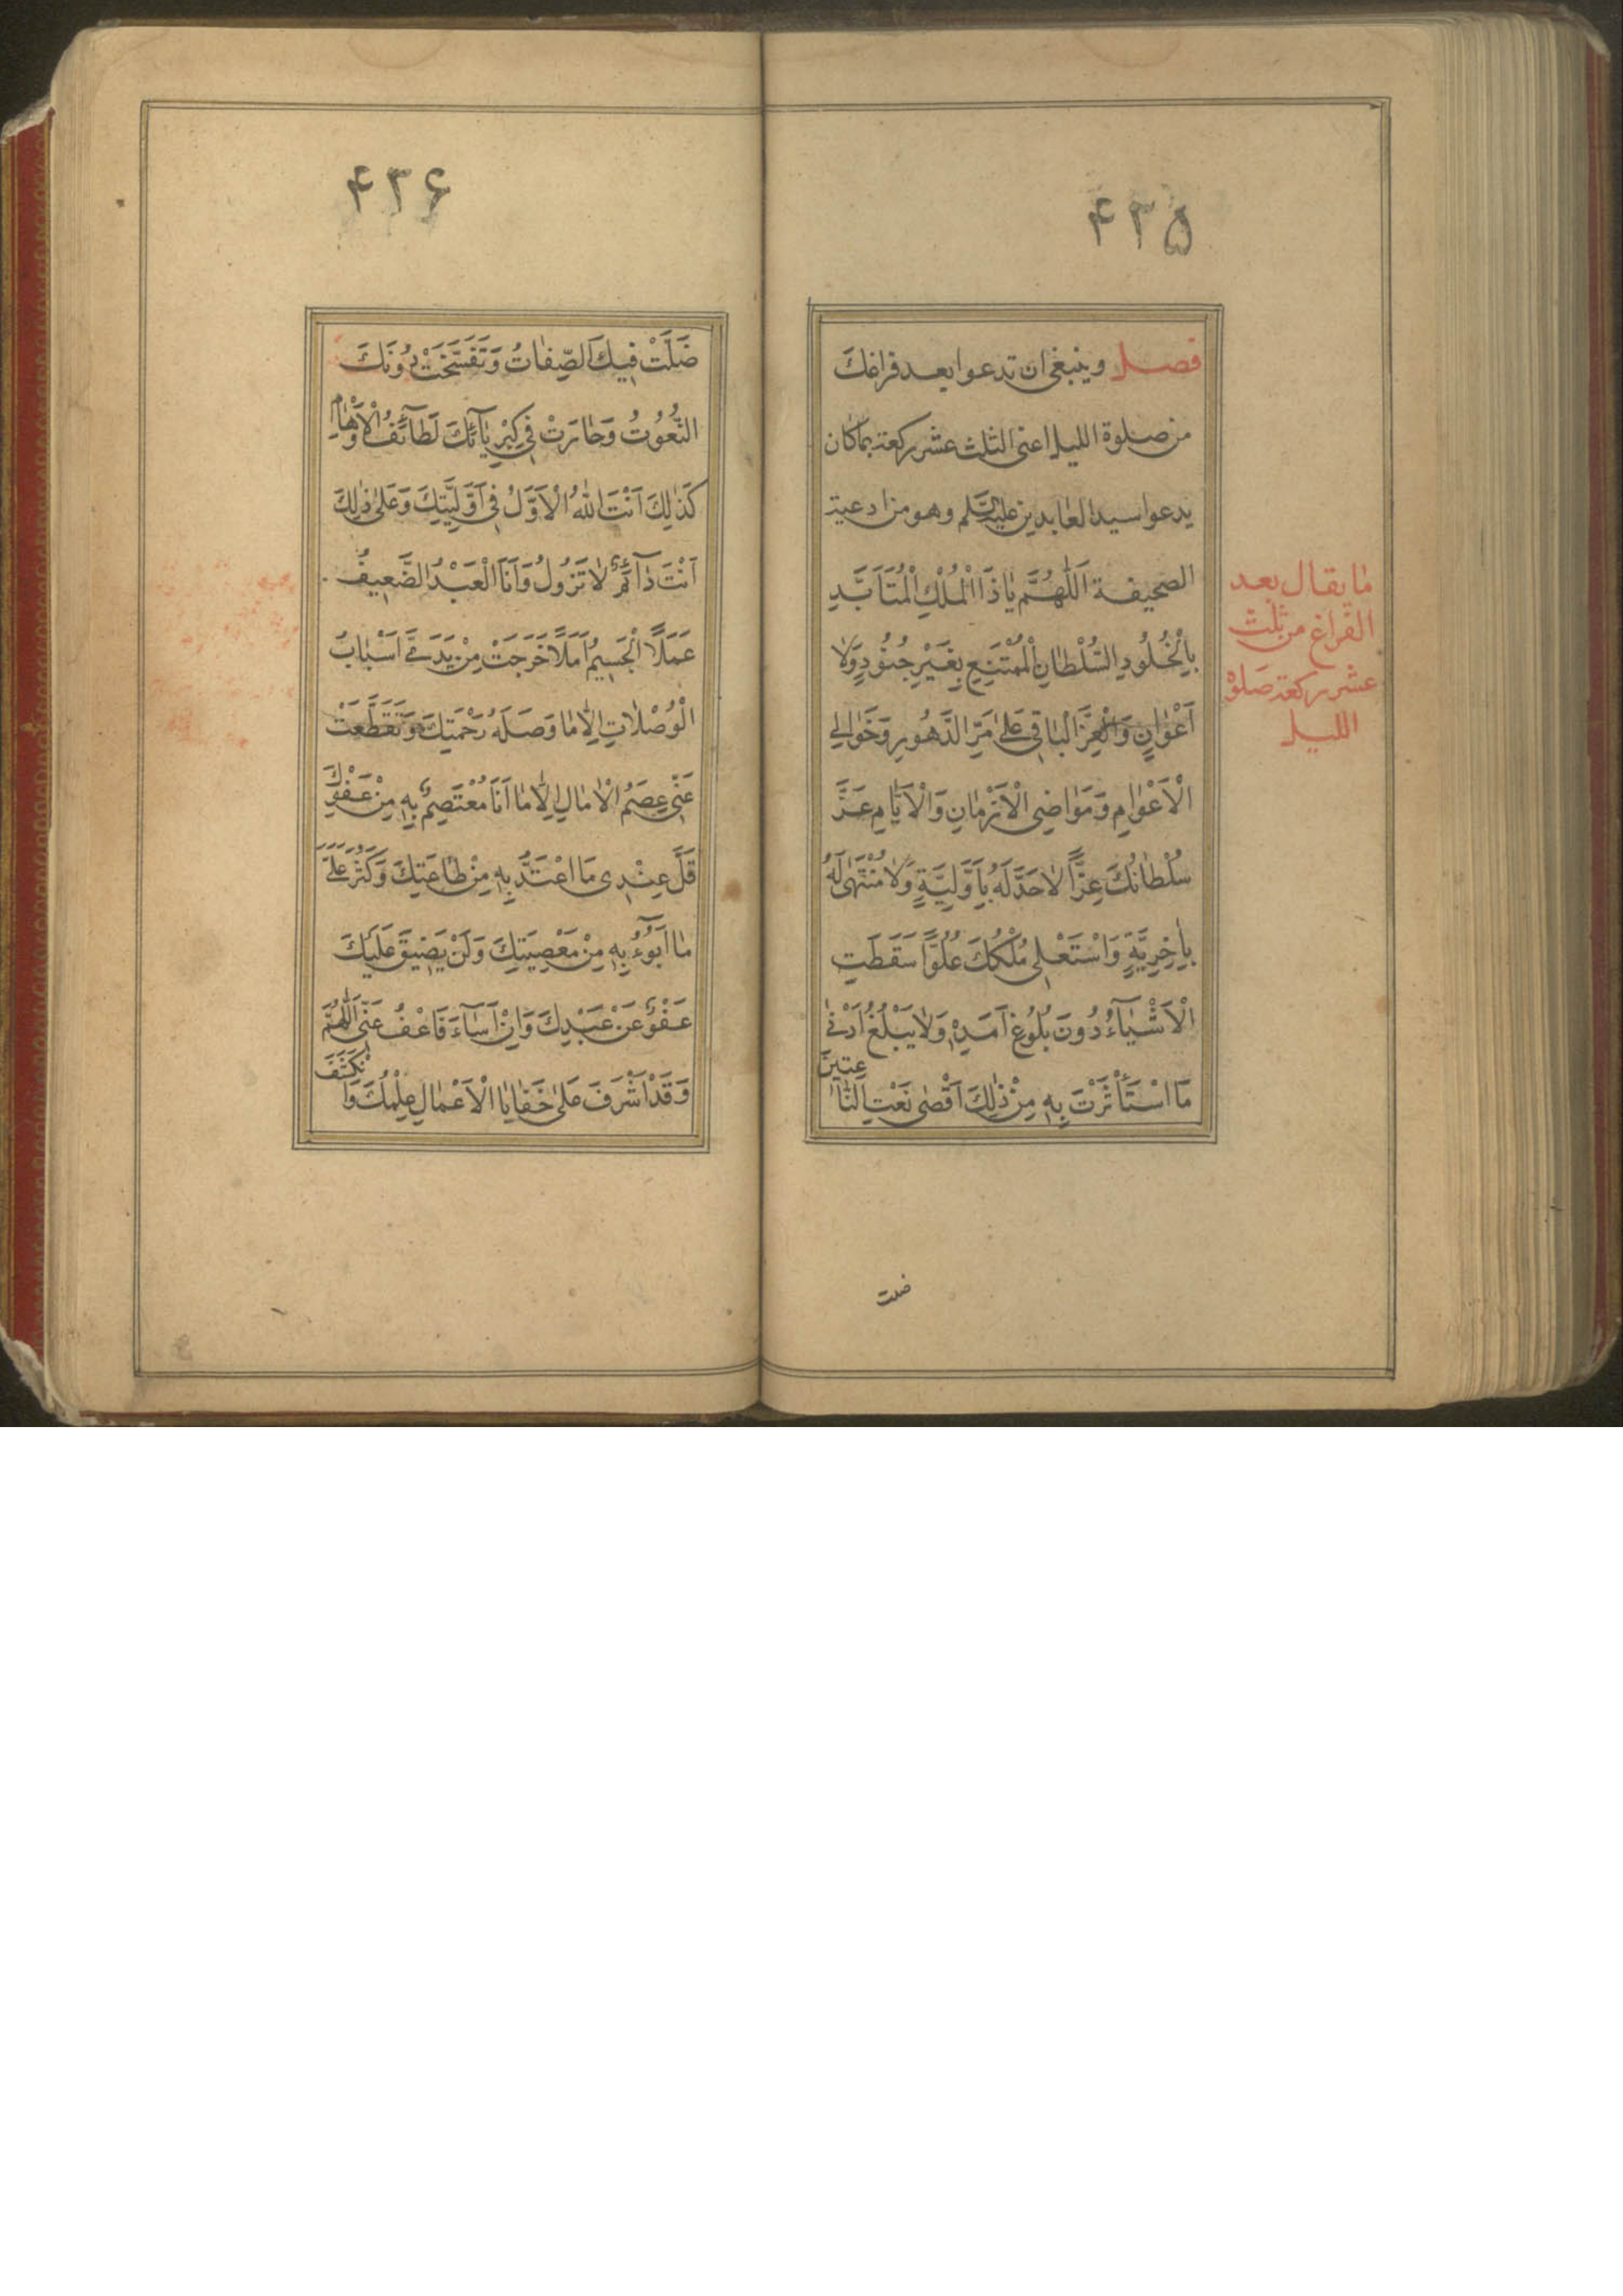 ۴۳۵
فصل وينبغى ان تدعوا بعد فراغك
من صلوة الليل اعنى الثلث عشر ركعة بما كان
يدعوا سيد العابدين عليه السلم وهو من ادعية
الصحيفة اَللّٰهُمَّ يٰا ذَا الْمُلْكِ الْمُتَاَبَّدِ
بِالْخُلُودِ السُّلْطٰانِ الْمُمْتَنِعِ بِغَيْرِ جُنُودٍ وَلٰا
اَعْوٰانٍ وَالْعِزِّ الْبٰاقِى عَلىٰ مَرِّ الدُّهُورِ وَخَوٰالِى
الْاَعْوٰامِ وَمَوٰاضِى الْاَزْمٰانِ وَالْاَيّٰامِ عَزَّ
سُلْطٰانُكَ عِزًّا لٰا حَدَّ لَهُ بِاَوَّلِيَّةٍ وَلٰا مُنْتَهىٰ لَهُ
بِاٰخِرِيَّةٍ وَاسْتَعْلىٰ مُلْكُكَ عُلُوًّا سَقَطَتِ
الْاَشْيٰآءُ دُونَ بُلُوغِ اَمَدِهِ وَلٰا يَبْلُغُ اَدْنىٰ
مَا اسْتَأْثَرْتَ بِهِ مِنْ ذٰلِكَ اَقْصىٰ نَعْتِ النّٰاعِتِينَ
ما يقال بعد
الفراغ من ثلث
عشر ركعة صلوة
الليل
ضلت
۴۳۶
ضَلَّتْ فِيكَ الصِّفٰاتُ وَتَفَسَّخَتْ دُونَكَ
النُّعُوتُ وَحٰارَتْ فِى كِبْرِيٰآئِكَ لَطٰآئِفُ الْاَوْهٰامِ
كَذٰلِكَ اَنْتَ اللّٰهُ الْاَوَّلُ فِى اَوَّلِيَّتِكَ وَعَلىٰ ذٰلِكَ
اَنْتَ دٰآئِمٌ لٰا تَزُولُ وَاَنَا الْعَبْدُ الضَّعِيفُ
عَمَلًا الْجَسِيمُ اَمَلًا خَرَجَتْ مِنْ يَدَىَّ اَسْبٰابُ
الْوُصُلٰاتِ اِلّٰا مٰا وَصَلَهُ رَحْمَتِكَ وَتَقَطَّعَتْ
عَنِّى عِصَمُ الْاٰمٰالِ اِلّٰا مٰا اَنَا مُعْتَصِمٌ بِهِ مِنْ عَفْوِكَ
قَلَّ عِنْدِى مَا اَعْتَدُّ بِهِ مِنْ طٰاعَتِكَ وَكَثُرَ عَلَىَّ
مٰا اَبُوءُ بِهِ مِنْ مَعْصِيَتِكَ وَلَنْ يَضِيقَ عَلَيْكَ
عَفْوٌ عَنْ عَبْدِكَ وَاِنْ اَسٰآءَ فَاعْفُ عَنِّى اَللّٰهُمَّ
وَقَدْ اَشْرَفَ عَلىٰ خَفٰايَا الْاَعْمٰالِ عِلْمُكَ وَانْكَشَفَ